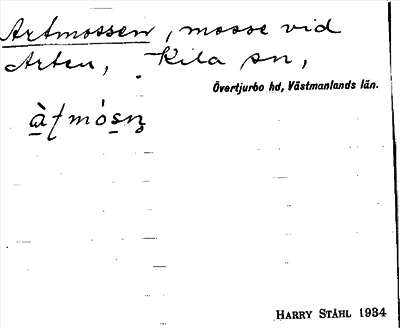 Artmossen, mosse vid
Arten, Kila sn,
Övertjurbo hd, Västmanlands län.
HARRY STÅHL 1934